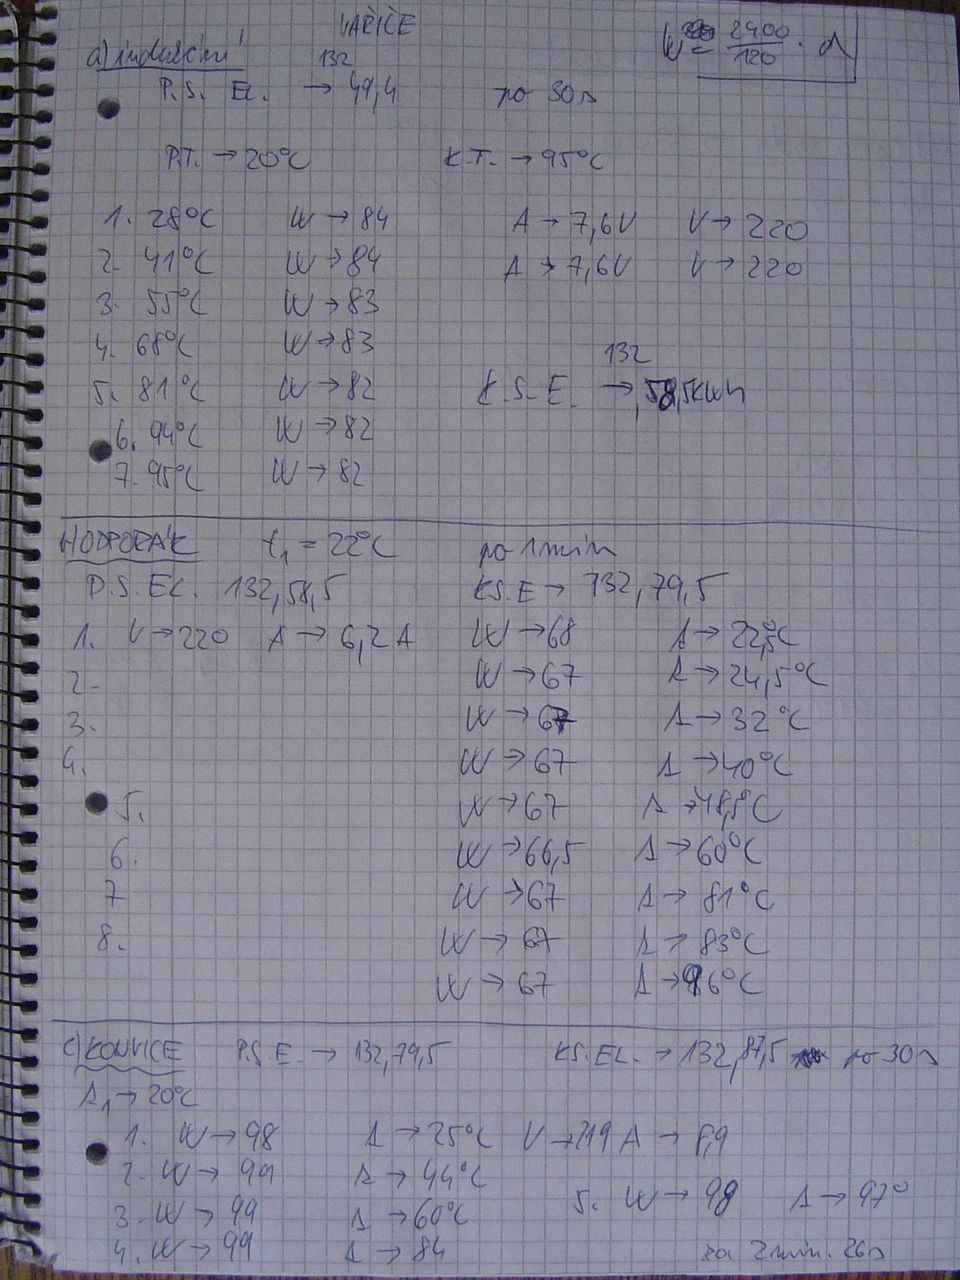 VAŘIČE
W = 2400/120 · d
a) indukční
132
P.S. EL. → 49,4 po 30s
P.T. → 20°C K.T. → 95°C
1. 28°C W → 84 A → 7,6V V → 220
2. 41°C W → 84 A → 7,6V V → 220
3. 55°C W → 83
4. 68°C W → 83
132
5. 81°C W → 82 K.S. E. → ,58,5kWh
6. 94°C W → 82
7. 95°C W → 82
ODPORÁK t₁ = 22°C po 1 min
P.S. EL. 132,58,5 KS.E → 132,79,5
1. V → 220 A → 6,2 A W → 68 t → 22,5°C
2. W → 67 t → 24,5°C
3. W → 67 t → 32°C
4. W → 67 t → 40°C
5. W → 67 t → 48,5°C
6. W → 66,5 t → 60°C
7 W → 67 t → 81°C
8. W → 67 t → 83°C
W → 67 t → 96°C
c) KONVICE P.S.E. → 132,79,5 KS.EL. → 132,87,5 po 30s
t₁ → 20°C
1. W → 98 t → 25°C V → 219 A → 8,9
2. W → 99 t → 44°C
5. W → 98 t → 97°
3. W → 99 t → 60°C
4. W → 99 t → 84 za 2 min. 26s